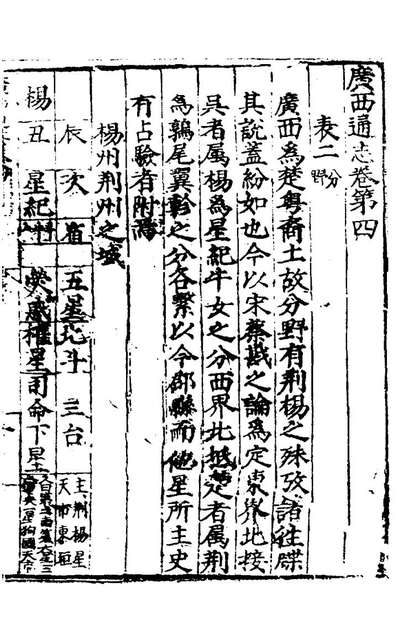 廣西通志卷第四
表二 分野
廣西為楚粤裔土故分野有荆楊之殊攷諸往牒
其說盖紛如也今以宋蔡戡之論為定東界北接
吳者属楊為星紀牛女之分西界北抵楚者属荆
為鶉尾翼軫之分各繫以今郡縣而他星所主史
有占驗者附諸
楊州荆州之域
辰 次 宿 五星 北斗 三台 主荆楊星 天市東垣
楊 丑 星紀 斗 熒惑 權星 司命下星